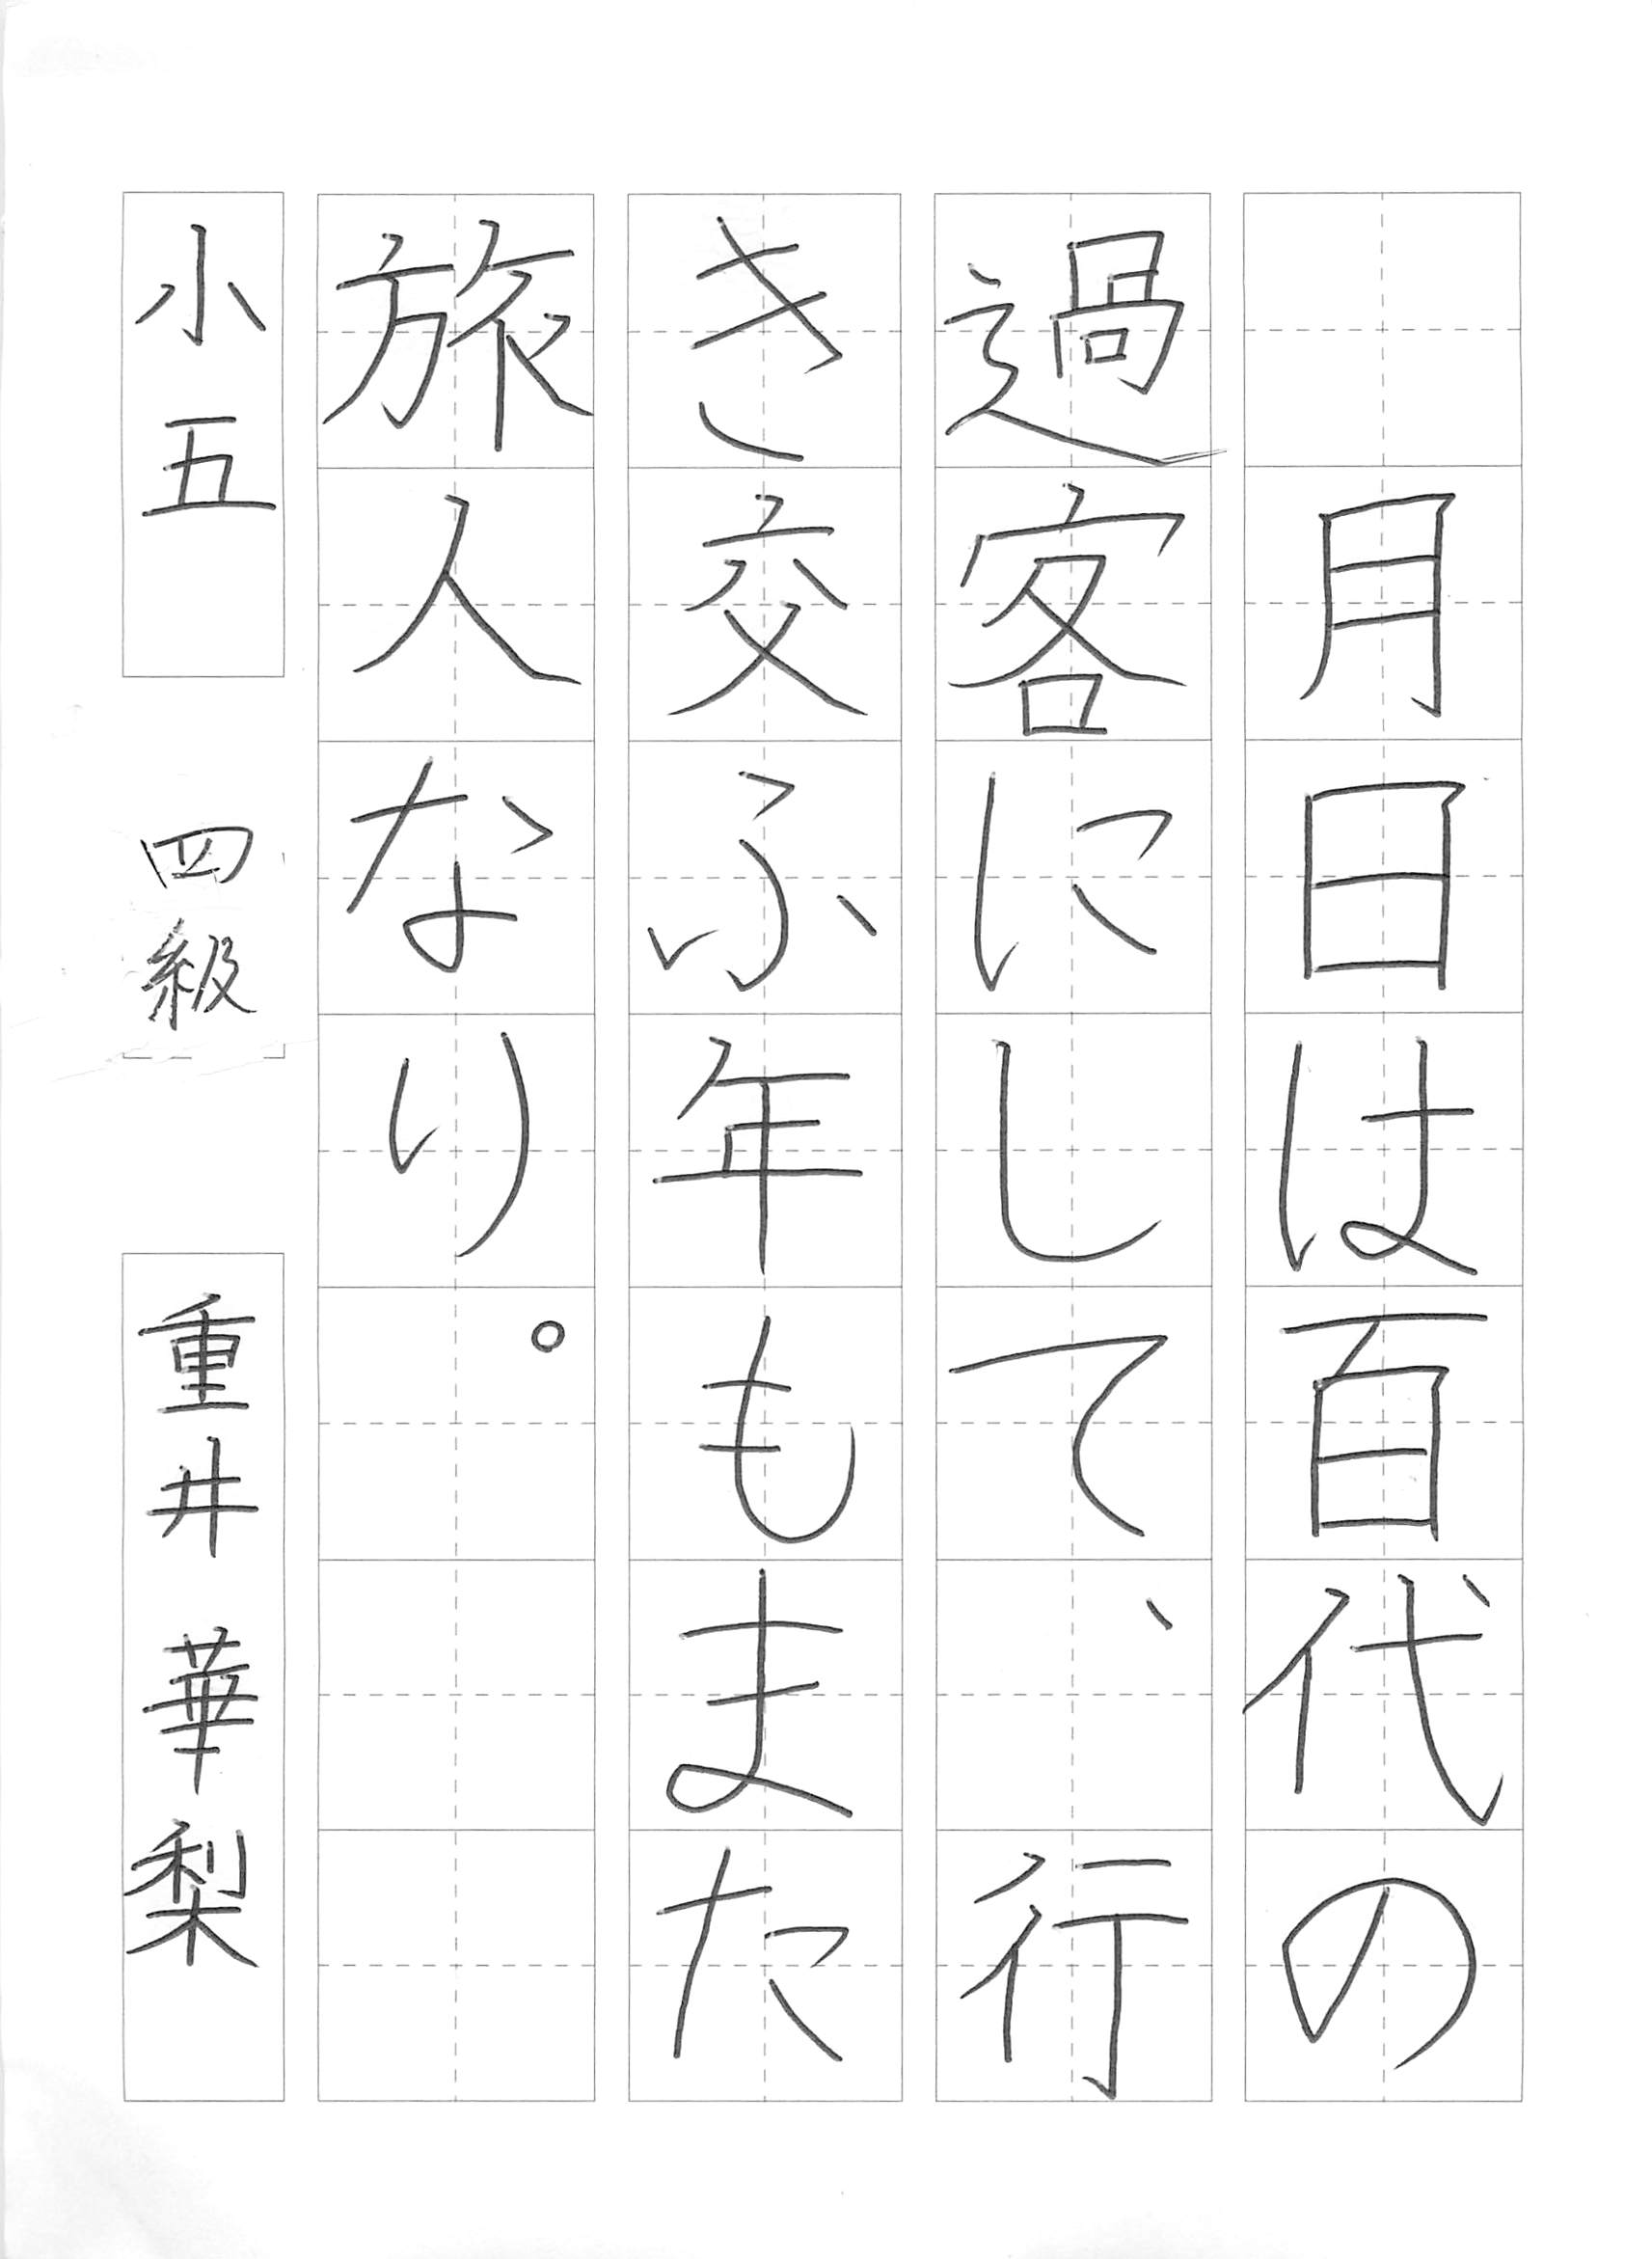 月日は百代の
過客にして、行
き交ふ年もまた
旅人なり。
小五
四級
重井華梨